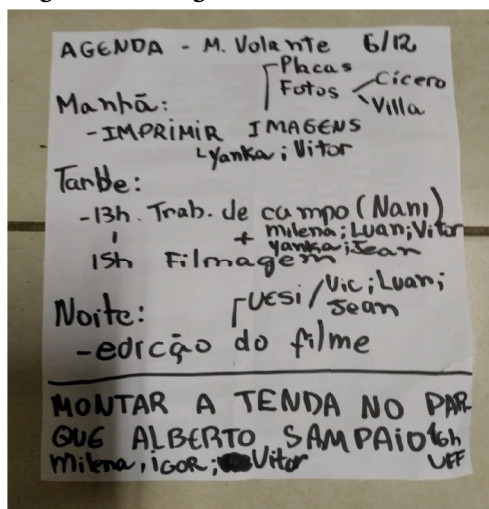 AGENDA - M. Volante 6/12
Placas
Fotos Cícero
Villa
Manhã:
- IMPRIMIR IMAGENS
Yanka; Vitor
Tarde:
- 13h. Trab. de campo (Nani)
+ milena; Luan; Vitor
yanka; Jean
15h Filmagem
Noite: UESI / Vic; Luan;
Jean
- edição do filme
MONTAR A TENDA NO PAR
QUE ALBERTO SAMPAIO 16h
Milena, IGOR; Vitor UFF